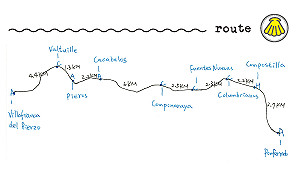 route
Valtuille
Cacabelos
Fuentes Nuevas
Compostilla
4.4KM
1.3KM
2.2KM
6KM
2.5KM
2.3KM
2.2KM
2.7KM
Pieros
Camponaraya
Columbrianos
Villafranca
del Bierzo
Ponferrada